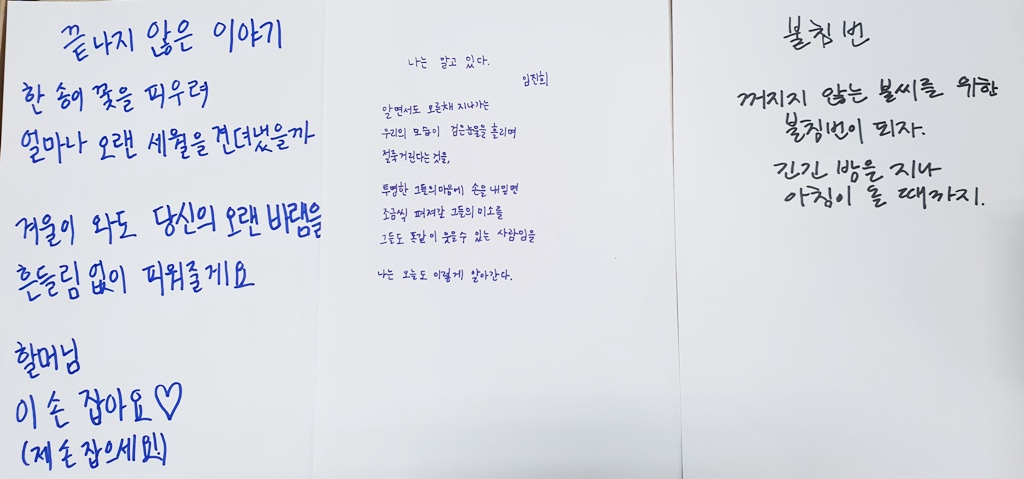 끝나지 않은 이야기
한 송이 꽃을 피우려
얼마나 오랜 세월을 견뎌냈을까
겨울이 와도 당신의 오랜 바램을
흔들림 없이 피워줄게요
할머님
이 손 잡아요♡
(제 손 잡으세요!)
나는 알고 있다.
임진희
알면서도 모른채 지나가는
우리의 모습이 검은눈물을 흘리며
절룩거린다는 것을,
투명한 그들의마음에 손을 내밀면
조금씩 퍼져갈 그들의 미소를
그들도 똑같이 웃을수 있는 사람임을
나는 오늘도 이렇게 알아간다.
불침번
꺼지지 않는 불씨를 위한
불침번이 되자.
긴긴 밤을 지나
아침이 올 때까지.